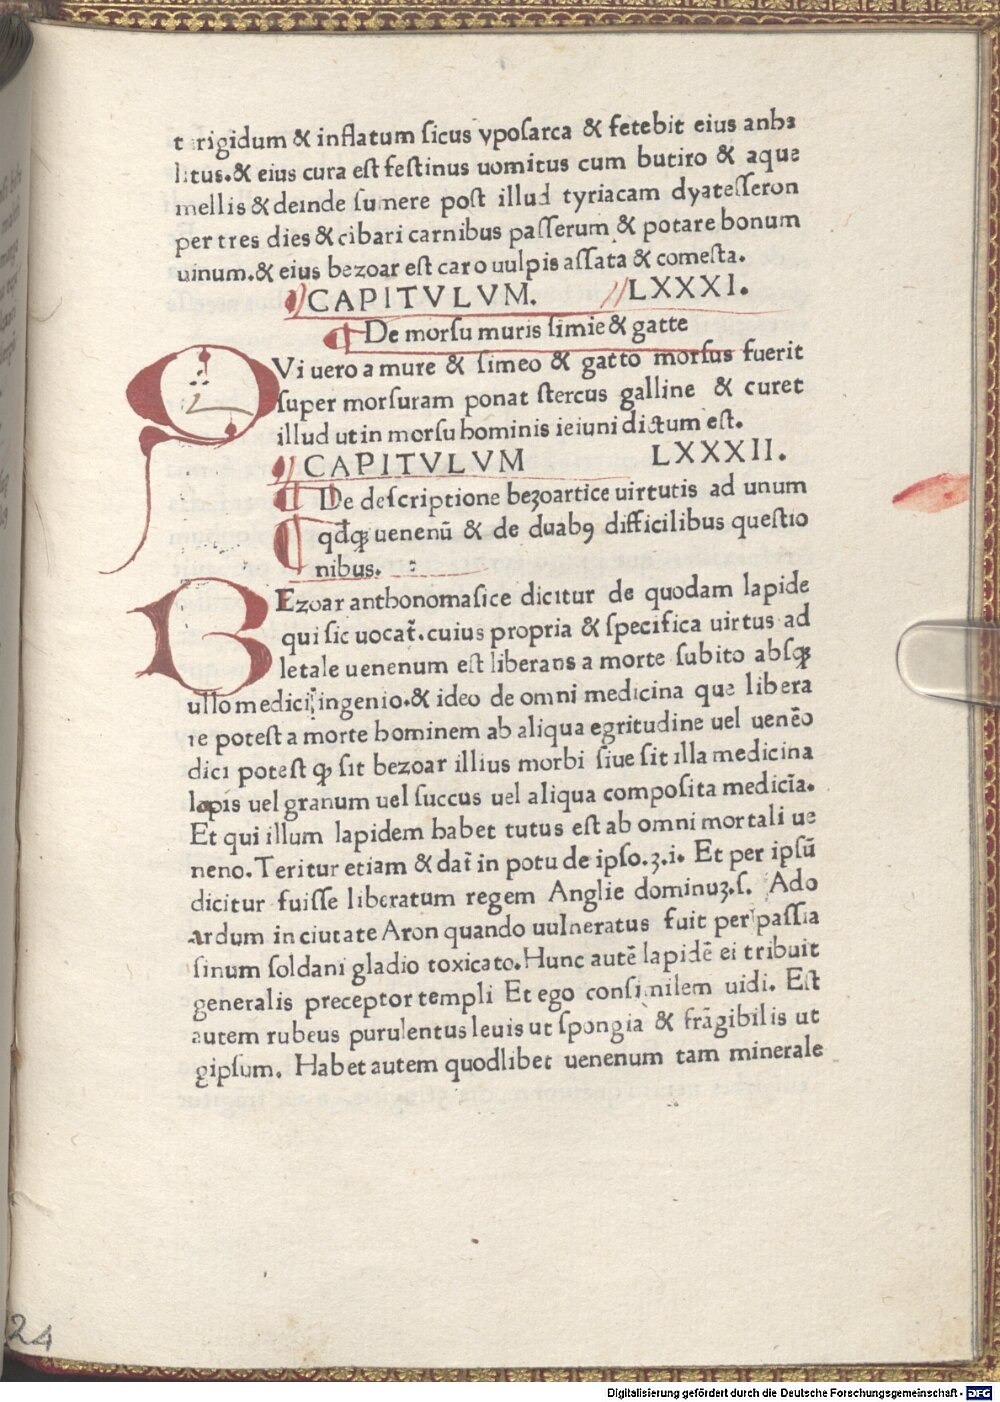 t rigidum & inflatum sicus yposarca & fetebit eius anha
litus.& eius cura est festinus uomitus cum butiro & aque
mellis & deinde sumere post illud tyriacam dyatesseron
per tres dies & cibari carnibus passerum & potare bonum
uinum.& eius bezoar est caro uulpis assata & comesta.
CAPITVLVM. LXXXI.
De morsu muris simie & gatte
QVi uero a mure & simeo & gatto morsus fuerit
super morsuram ponat stercus galline & curet
illud ut in morsu hominis ieiuni dictum est.
CAPITVLVM LXXXII.
De descriptione bezoartice uirtutis ad unum
qdꝙ uenenū & de duabꝯ difficilibus questio
nibus.
BEzoar anthonomasice dicitur de quodam lapide
qui sic uocat̄.cuius propria & specifica uirtus ad
letale uenenum est liberans a morte subito absꝙ
ullo medici ingenio.& ideo de omni medicina que libera
re potest a morte hominem ab aliqua egritudine uel uenēo
dici potest ꝙ sit bezoar illius morbi siue sit illa medicina
lapis uel granum uel succus uel aliqua composita medicīa.
Et qui illum lapidem habet tutus est ab omni mortali ue
neno. Teritur etiam & dat̄ in potu de ipso.ʒ.i. Et per ipsū
dicitur fuisse liberatum regem Anglie dominuꝫ.s. Ado
ardum in ciutate Aron quando uulneratus fuit per passia
sinum soldani gladio toxicato. Hunc autē lapidē ei tribuit
generalis preceptor templi Et ego consimilem uidi. Est
autem rubeus purulentus leuis ut spongia & frāgibilis ut
gipsum. Habet autem quodlibet uenenum tam minerale
24
Digitalisierung gefördert durch die Deutsche Forschungsgemeinschaft - DFG